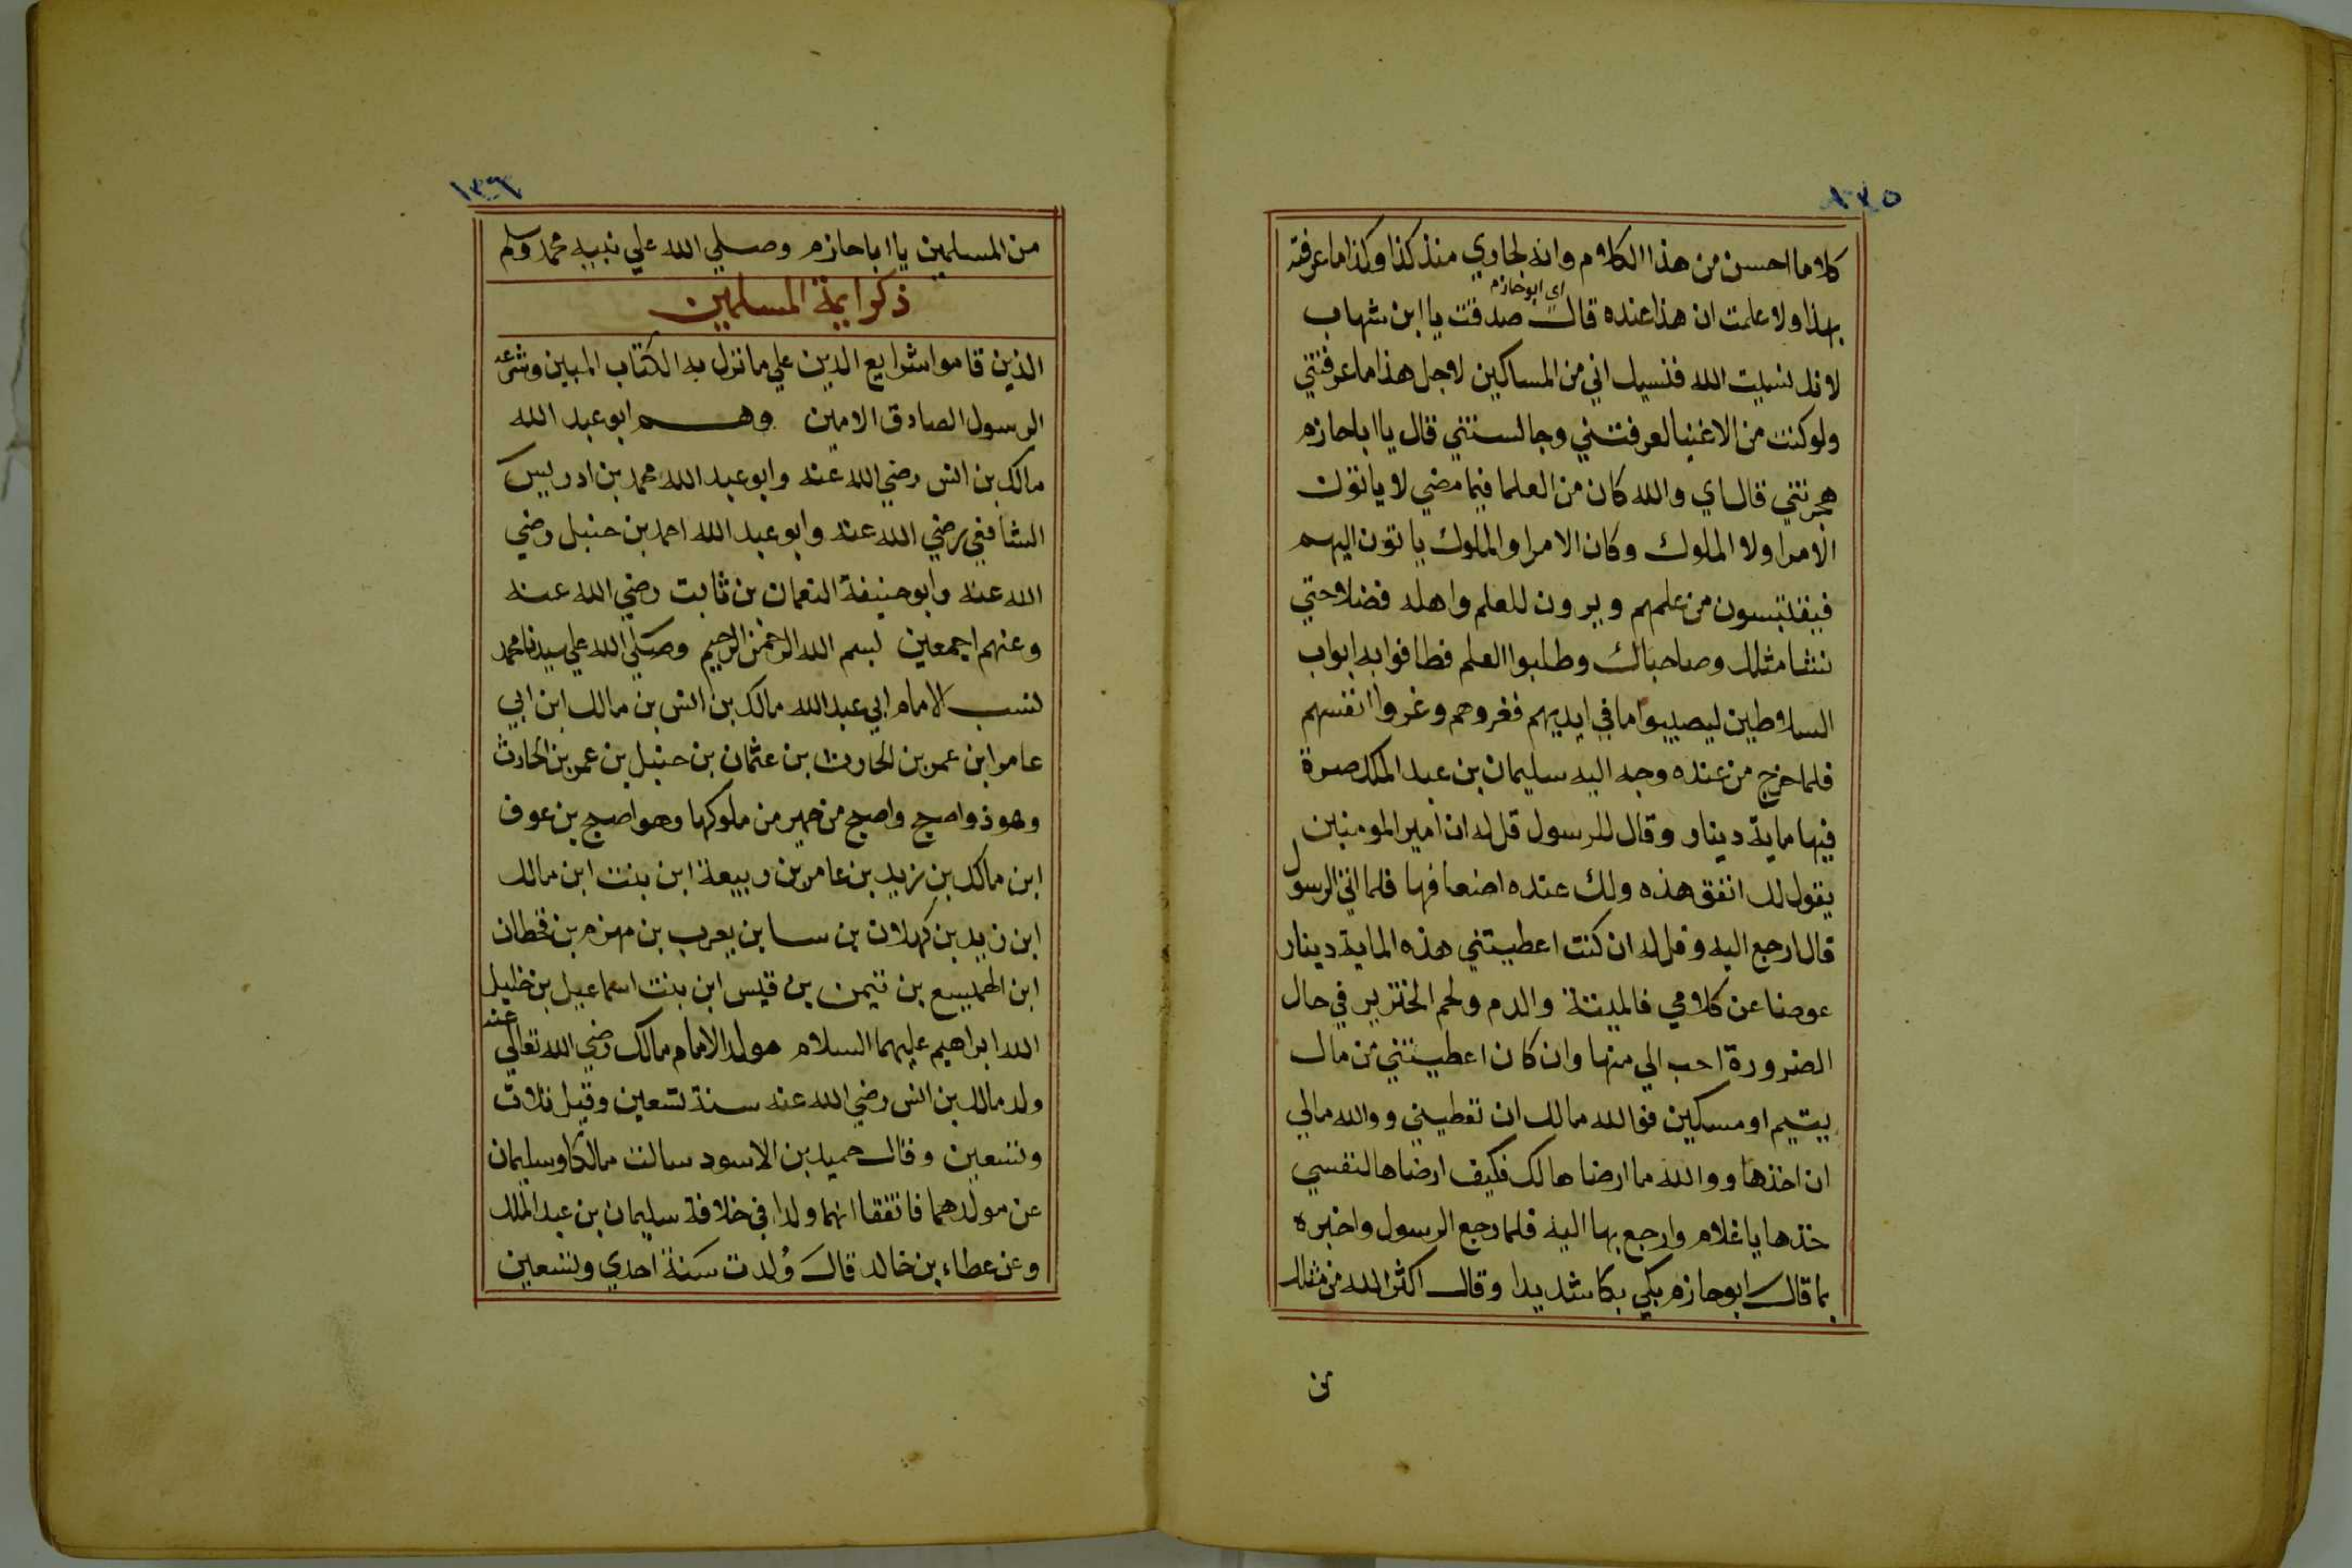 ١٣٥
كلاما احسن من هذا الكلام وانه لجاري منذ كذا وكذا ما عرفته
اي ابو حازم
بهذا ولا علمت ان هذا عنده قال صدقت يا ابن شهاب
لانك نسيت الله فنسيك اني من المساكين لاجل هذا ما عرفتني
ولو كنت من الاغنيا لعرفتني وجالستني قال يا ابا حازم
هجرتني قال اي والله كان من العلما فيما مضي لا ياتون
الامرا ولا الملوك وكان الامرا والملوك ياتون اليهم
فيقتبسون من علمهم ويرون للعلم واهله فضلا حتي
نشا مثلك وصاحباك وطلبوا العلم فطافوا به ابواب
السلاطين ليصيبوا ما في ايديهم فغروهم وغروا انفسهم
فلما خرج من عنده وجه اليه سليمان بن عبد الملك صرة
فيها ماية دينار وقال للرسول قل له ان امير المومنين
يقول لك انفق هذه ولك عنده اضعافها فلما اتي الرسول
قال ارجع اليه وقل له ان كنت اعطيتني هذه الماية دينار
عوضا عن كلامي فالميتة والدم ولحم الخنزير في حال
الضرورة احب الي منها وان كان اعطيتني من مال
يتيم او مسكين فوالله مالك ان تعطيني ووالله مالي
ان اخذها ووالله ما ارضاها لك فكيف ارضاها لنفسي
خذها يا غلام وارجع بها اليه فلما رجع الرسول واخبره
بما قال ابو حازم بكي بكا شديدا وقال اكثر الله من مثلك
من
١٣٦
من المسلمين يا ابا حازم وصلي الله علي نبيه محمد وسلم
ذكر ايمة المسلمين
الذين قاموا شرايع الدين علي ما نزل به الكتاب المبين وشرعه
الرسول الصادق الامين وهم ابو عبد الله
مالك بن انس رضي الله عنه وابو عبد الله محمد بن ادريس
الشافعي رضي الله عنه وابو عبد الله احمد بن حنبل رضي
الله عنه وابو حنيفة النعمان بن ثابت رضي الله عنه
وعنهم اجمعين بسم الله الرحمن الرحيم وصلي الله علي سيدنا محمد
نسب الامام ابي عبد الله مالك بن انس بن مالك ابن ابي
عامر ابن عمر بن الحارث بن عثمان بن حنبل بن عمر بن الحارث
وهو ذو اصبح واصبح من حمير من ملوكها وهو اصبح بن عوف
ابن مالك بن زيد بن عامر بن ربيعة ابن بنت ابن مالك
ابن زيد بن كهلان بن سا بن يعرب بن مهزم بن قحطان
ابن الهميسع بن تيمن بن قيس ابن بنت اسماعيل بن خليل
الله ابراهيم عليهما السلام مولد الامام مالك رضي الله تعالي عنه
ولد مالك بن انس رضي الله عنه سنة تسعين وقيل ثلاث
وتسعين وقال حميد بن الاسود سالت مالكا وسليمان
عن مولدهما فاتفقا انهما ولدا في خلافة سليمان بن عبد الملك
وعن عطاء بن خالد قال وُلدت سنة احدي وتسعين